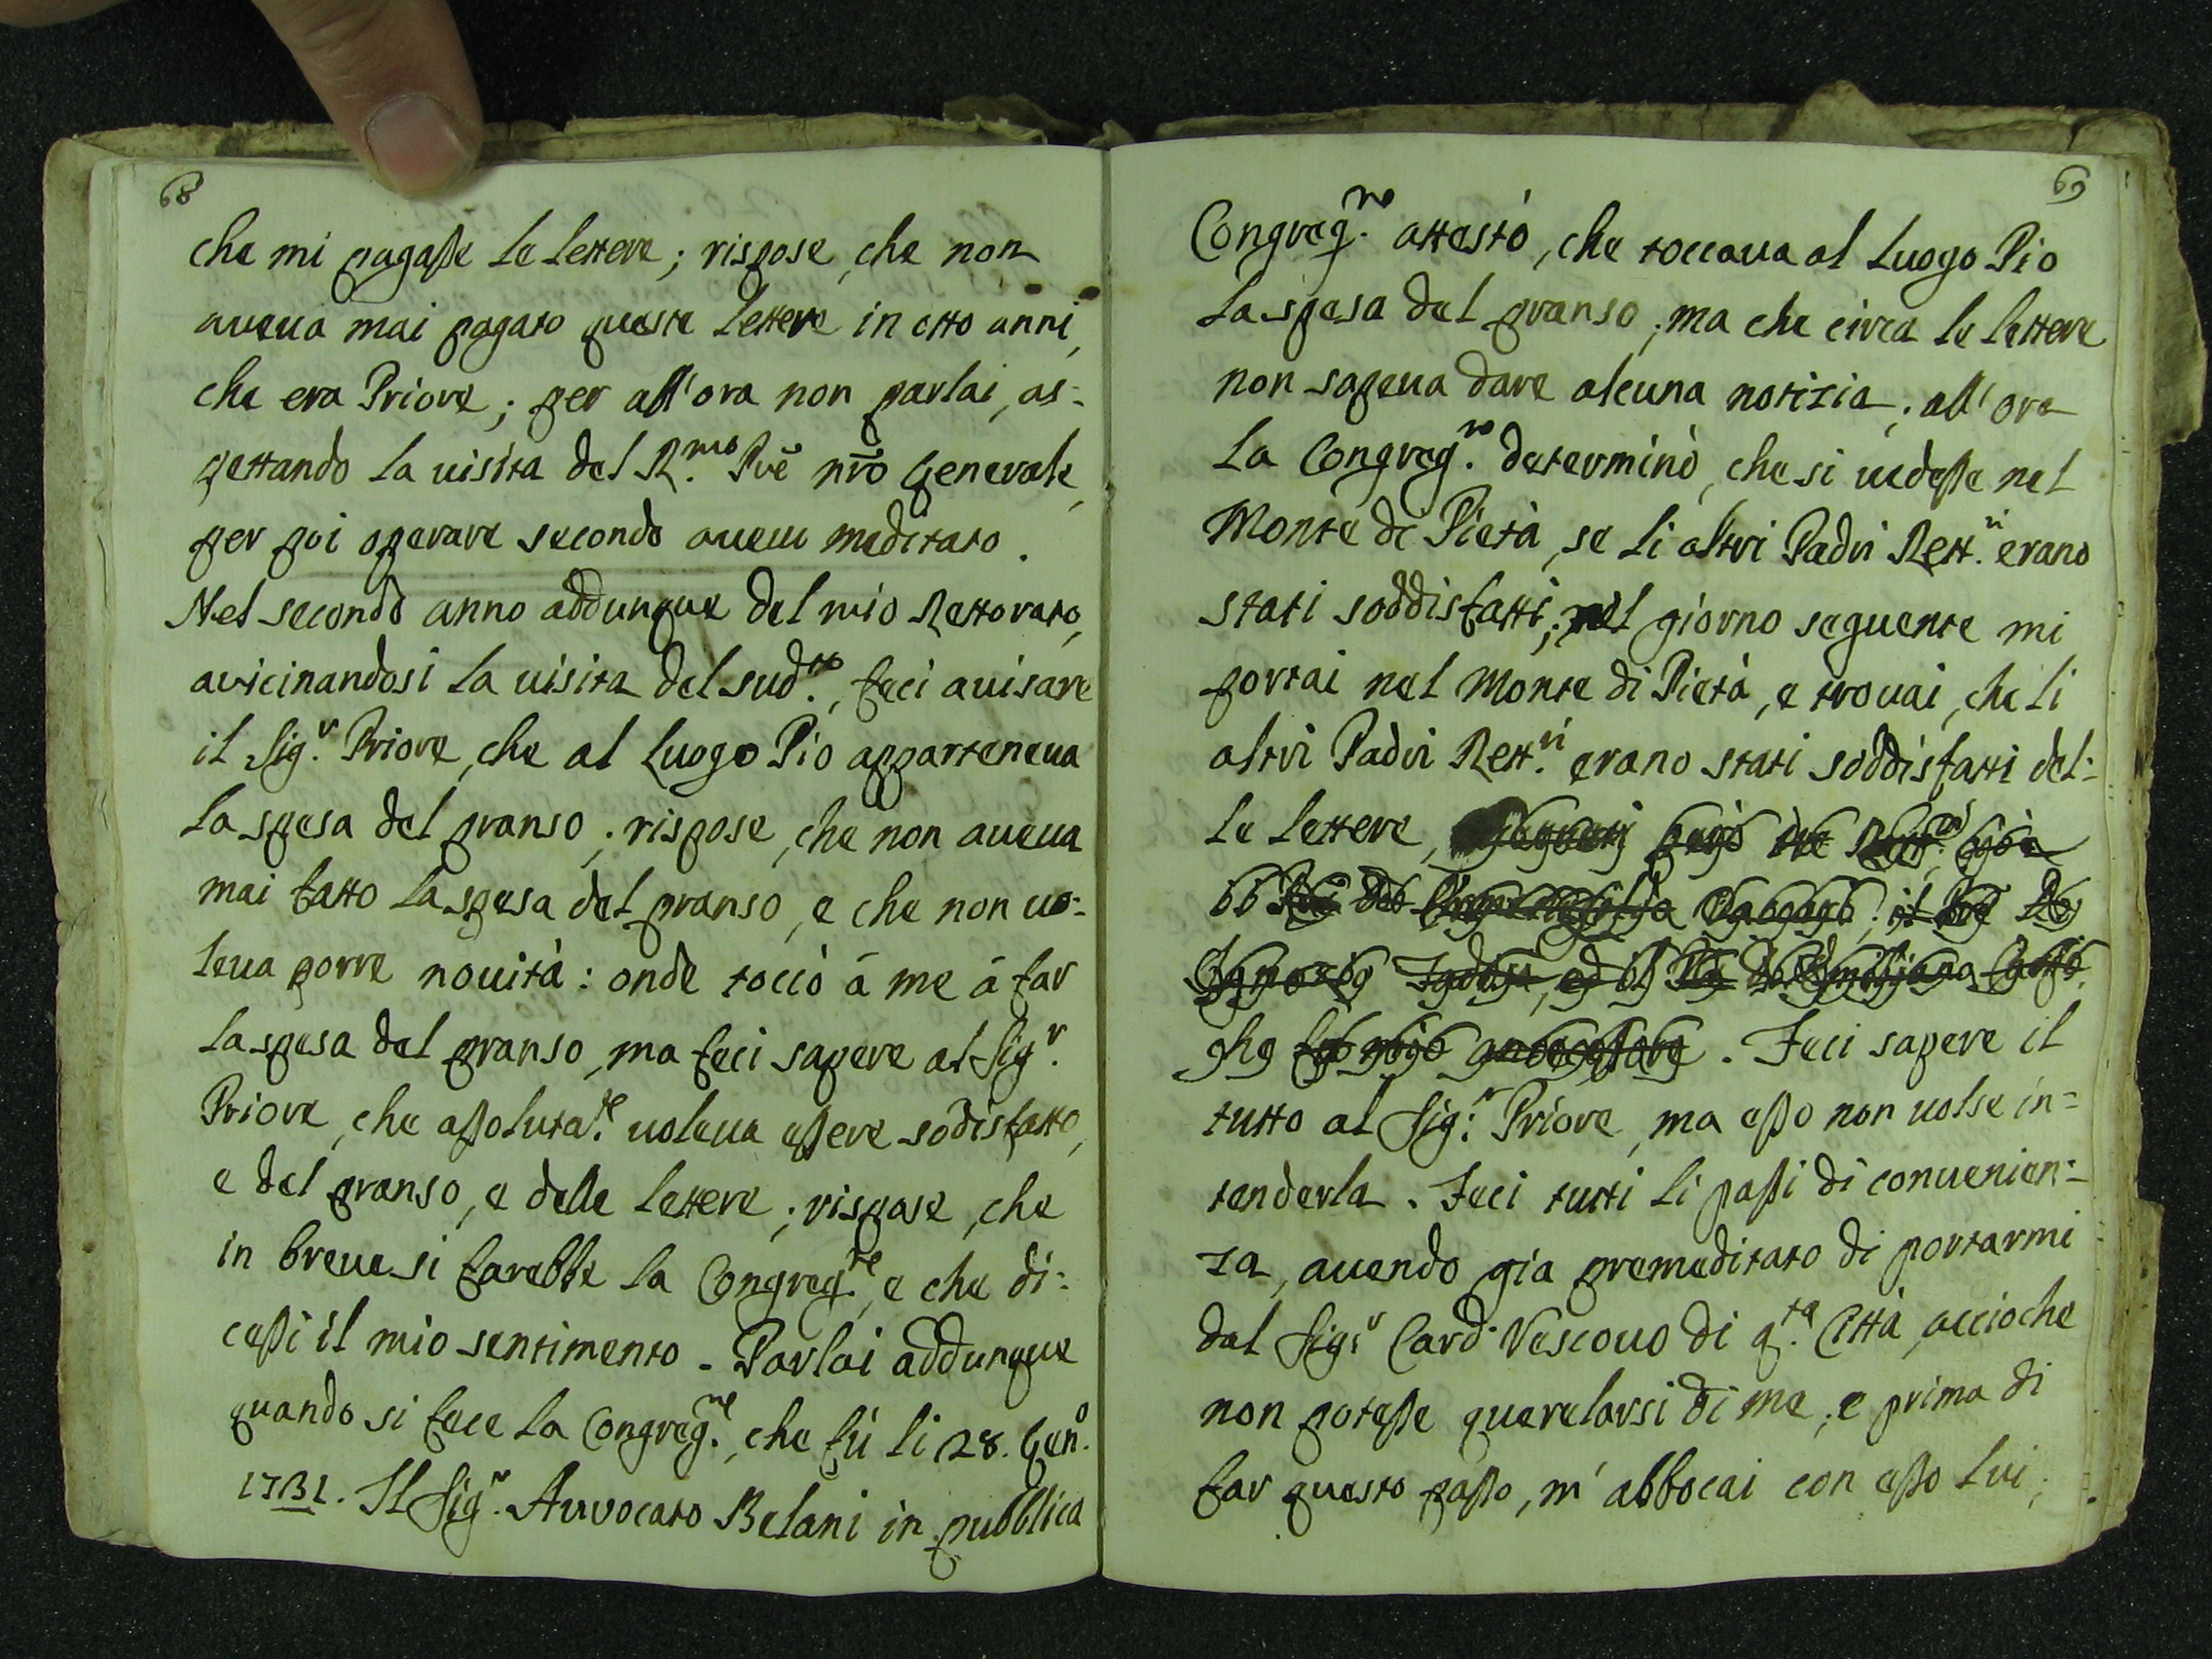 68
che mi pagasse le lettere; rispose, che non
aueua mai pagato queste lettere in otto anni,
che era Priore; per all'ora non parlai, as=
pettando la uisita del R.mo Prē nr̄o Generale,
per poi operare secondo aueuo meditato.
Nel secondo anno addunque del mio Rettorato,
avicinandosi la uisita del sud.to, feci auisare
il Sig.r Priore, che al Luogo Pio apparteneua
la spesa del pranso; rispose, che non aueua
mai fatto la spesa del pranso, e che non uo=
leua porre nouità: onde toccò à me à far
la spesa del pranso, ma feci sapere al Sig.r
Priore, che assoluta.te uoleua essere sodisfatto,
e del pranso, e delle lettere; rispose, che
in breue si farebbe la Congreg.ne, e che di=
cessi il mio sentimento. Parlai addunque
quando si fece la Congreg.ne, che fù li 28. Gen.o
1731. Il Sig.r Auvocato Belani in pubblica
69
Congreg.ne attestò, che toccaua al Luogo Pio
la spesa del pranso, ma che circa le lettere
non sapeua dare alcuna notizia; all'ora
la Congreg.ne determinò, che si uedesse nel
Monte di Pietà, se li altri Padri Rett.ri erano
stati soddisfatti; nel giorno seguente mi
portai nel Monte di Pietà, e trouai, che li
altri Padri Rett.ri erano stati soddisfatti del=
le lettere,
che fù mio antecessore. Feci sapere il
tutto al Sig.r Priore, ma esso non uolse in=
tenderla. Feci tutti li passi di conuenien=
za, auendo già premeditato di portarmi
dal Sig.r Card. Vescouo di q.ta Città, acciochè
non potesse querelarsi di me; e prima di
far questo passo, m'abbocai con esso lui;